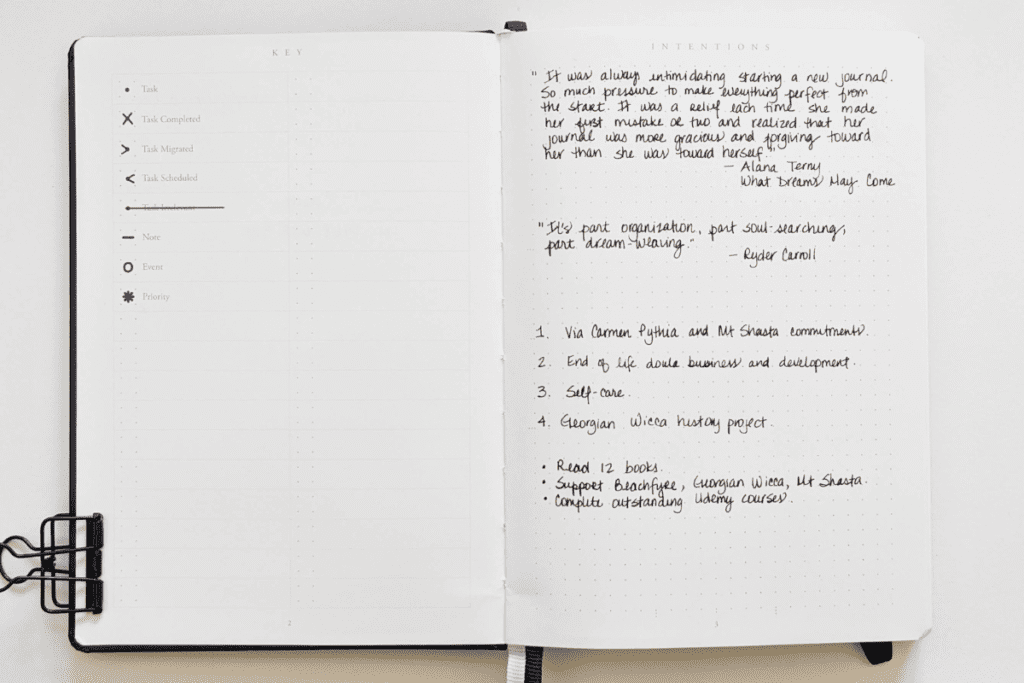 KEY
Task
Task Completed
Task Migrated
Task Scheduled
Task Irrelevant
Note
Event
Priority
2
INTENTIONS
" It was always intimidating starting a new journal.
So much pressure to make everything perfect from
the start. It was a relief each time she made
her first mistake or two and realized that her
journal was more gracious and forgiving toward
her than she was toward herself."
— Alana Terry
What Dreams May Come
"It's part organization, part soul-searching,
part dream-weaving."
— Ryder Carroll
1. Via Carmen Pythia and Mt Shasta commitments.
2. End of life doula business and development.
3. Self-care.
4. Georgian Wicca history project.
• Read 12 books.
• Support Beachfyre, Georgian Wicca, Mt Shasta.
• Complete outstanding Udemy courses.
3